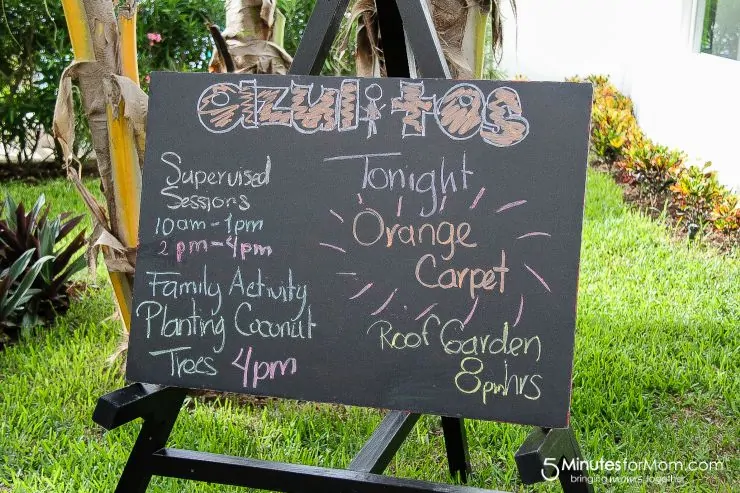 azulitos
Supervised
Sessions
10am-1pm
2pm-4pm
Family Activity
Planting Coconut
Trees 4pm
Tonight
Orange
Carpet
Roof Garden
8pmhrs
5MinutesforMom.com
bringing mothers together